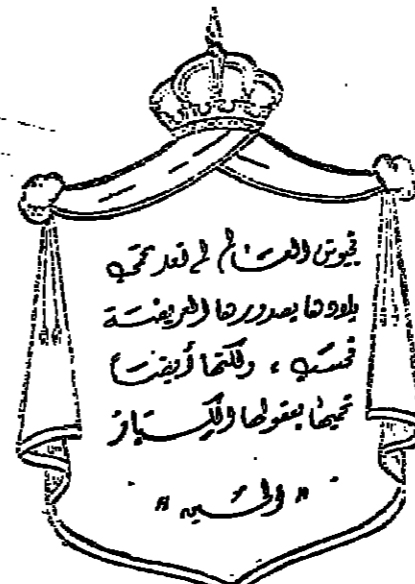 فجيوش العالم لم تعد تحمي
بلادها بصدورها العريضة
فحسب ، ولكنها أيضاً
تحميها بعقولها الكبيرة
" الحسين "